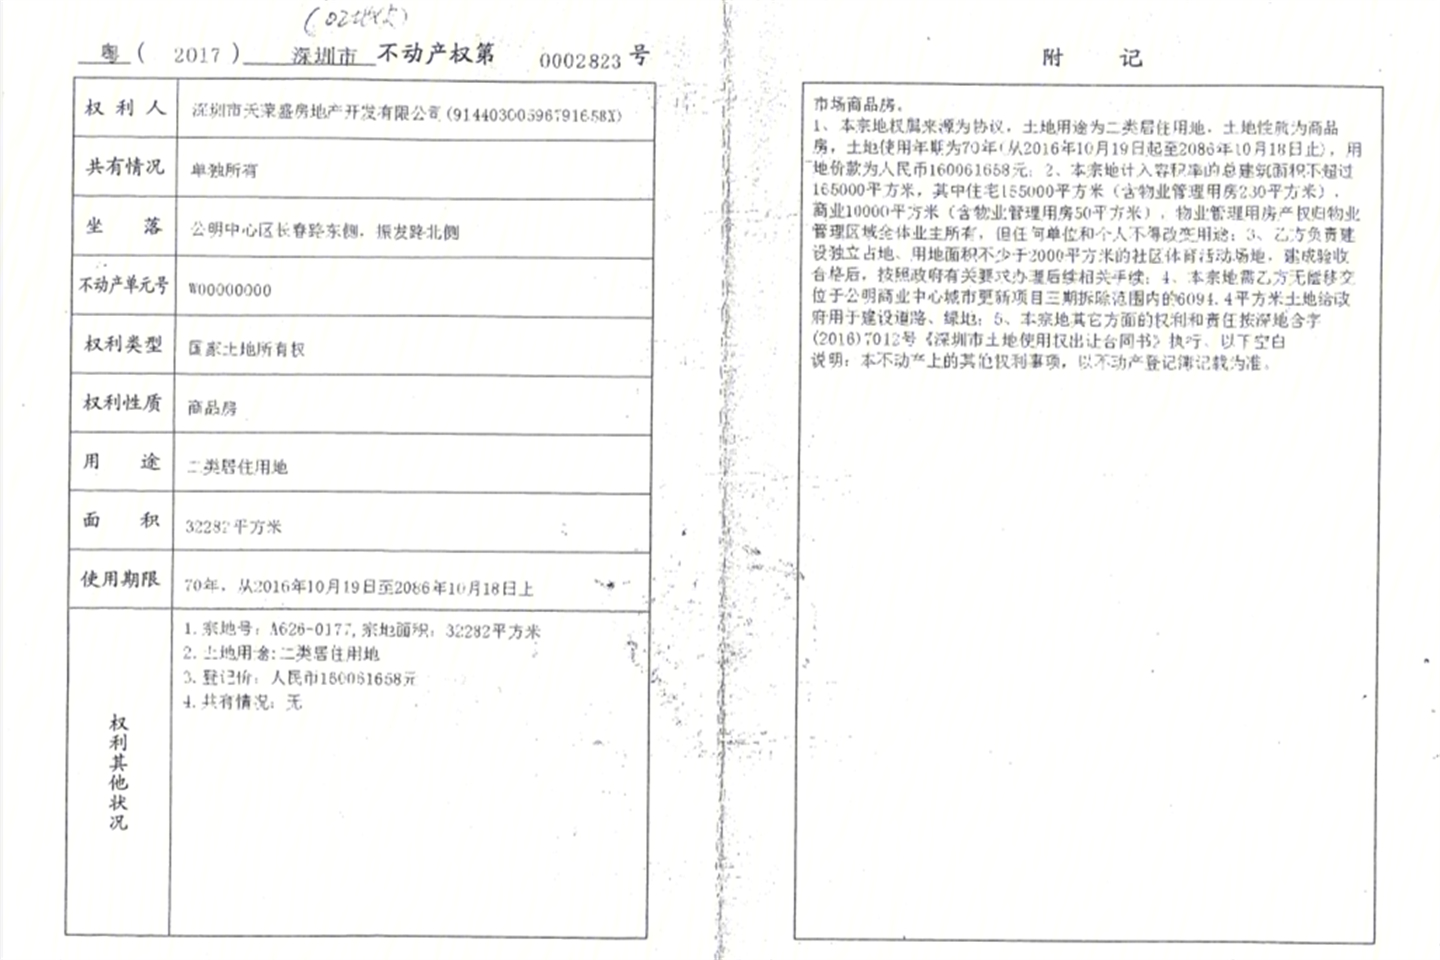 (02地块)
粤 ( 2017 ) 深圳市 不动产权第 0002823 号
权利人 深圳市天荣盛房地产开发有限公司(91440300596791658X)
共有情况 单独所有
坐落 公明中心区长春路东侧，振发路北侧
不动产单元号 W00000000
权利类型 国家土地所有权
权利性质 商品房
用途 二类居住用地
面积 32282平方米
使用期限 70年，从2016年10月19日至2086年10月18日止
权利其他状况
1. 宗地号：A626-0177, 宗地面积：32282平方米
2. 土地用途:二类居住用地
3. 登记价：人民币160061658元
4. 共有情况：无
附 记
市场商品房。
1、本宗地权属来源为协议，土地用途为二类居住用地，土地性质为商品
房，土地使用年期为70年(从2016年10月19日起至2086年10月18日止)，用
地价款为人民币160061658元；2、本宗地计入容积率的总建筑面积不超过
165000平方米，其中住宅155000平方米（含物业管理用房230平方米），
商业10000平方米（含物业管理用房50平方米），物业管理用房产权归物业
管理区域全体业主所有，但任何单位和个人不得改变用途；3、乙方负责建
设独立占地、用地面积不少于2000平方米的社区体育活动场地，建成验收
合格后，按照政府有关要求办理后续相关手续；4、本宗地需乙方无偿移交
位于公明商业中心城市更新项目三期拆除范围内的6094.4平方米土地给政
府用于建设道路、绿地；5、本宗地其它方面的权利和责任按深地合字
(2016)7012号《深圳市土地使用权出让合同书》执行。以下空白
说明：本不动产上的其他权利事项，以不动产登记簿记载为准。